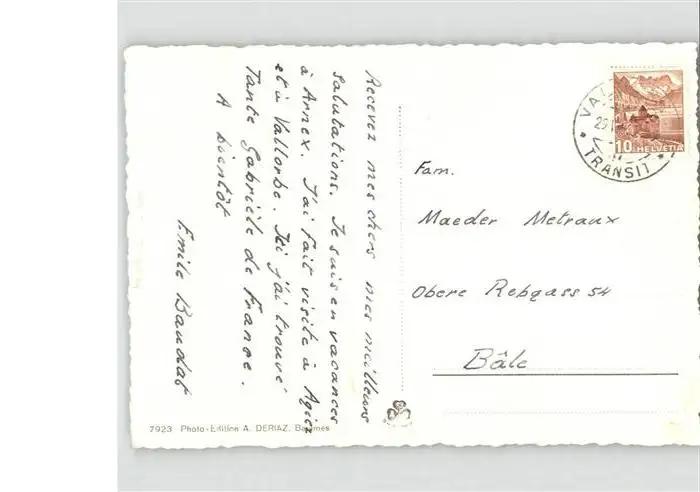 Recevez mes chers mes meilleurs
salutations. Je suis en vacances
à Arnex. J'ai fait visite à Agiez
et à Vallorbe. Ici j'ai trouvé
Tante Gabrièle de France.
A bientôt
Emile Baudat
Fam.
Maeder Metraux
Obere Rebgass 54
Bâle
10 HELVETIA
TRANSIT
7923 Photo-Edition A. DERIAZ, Baulmes